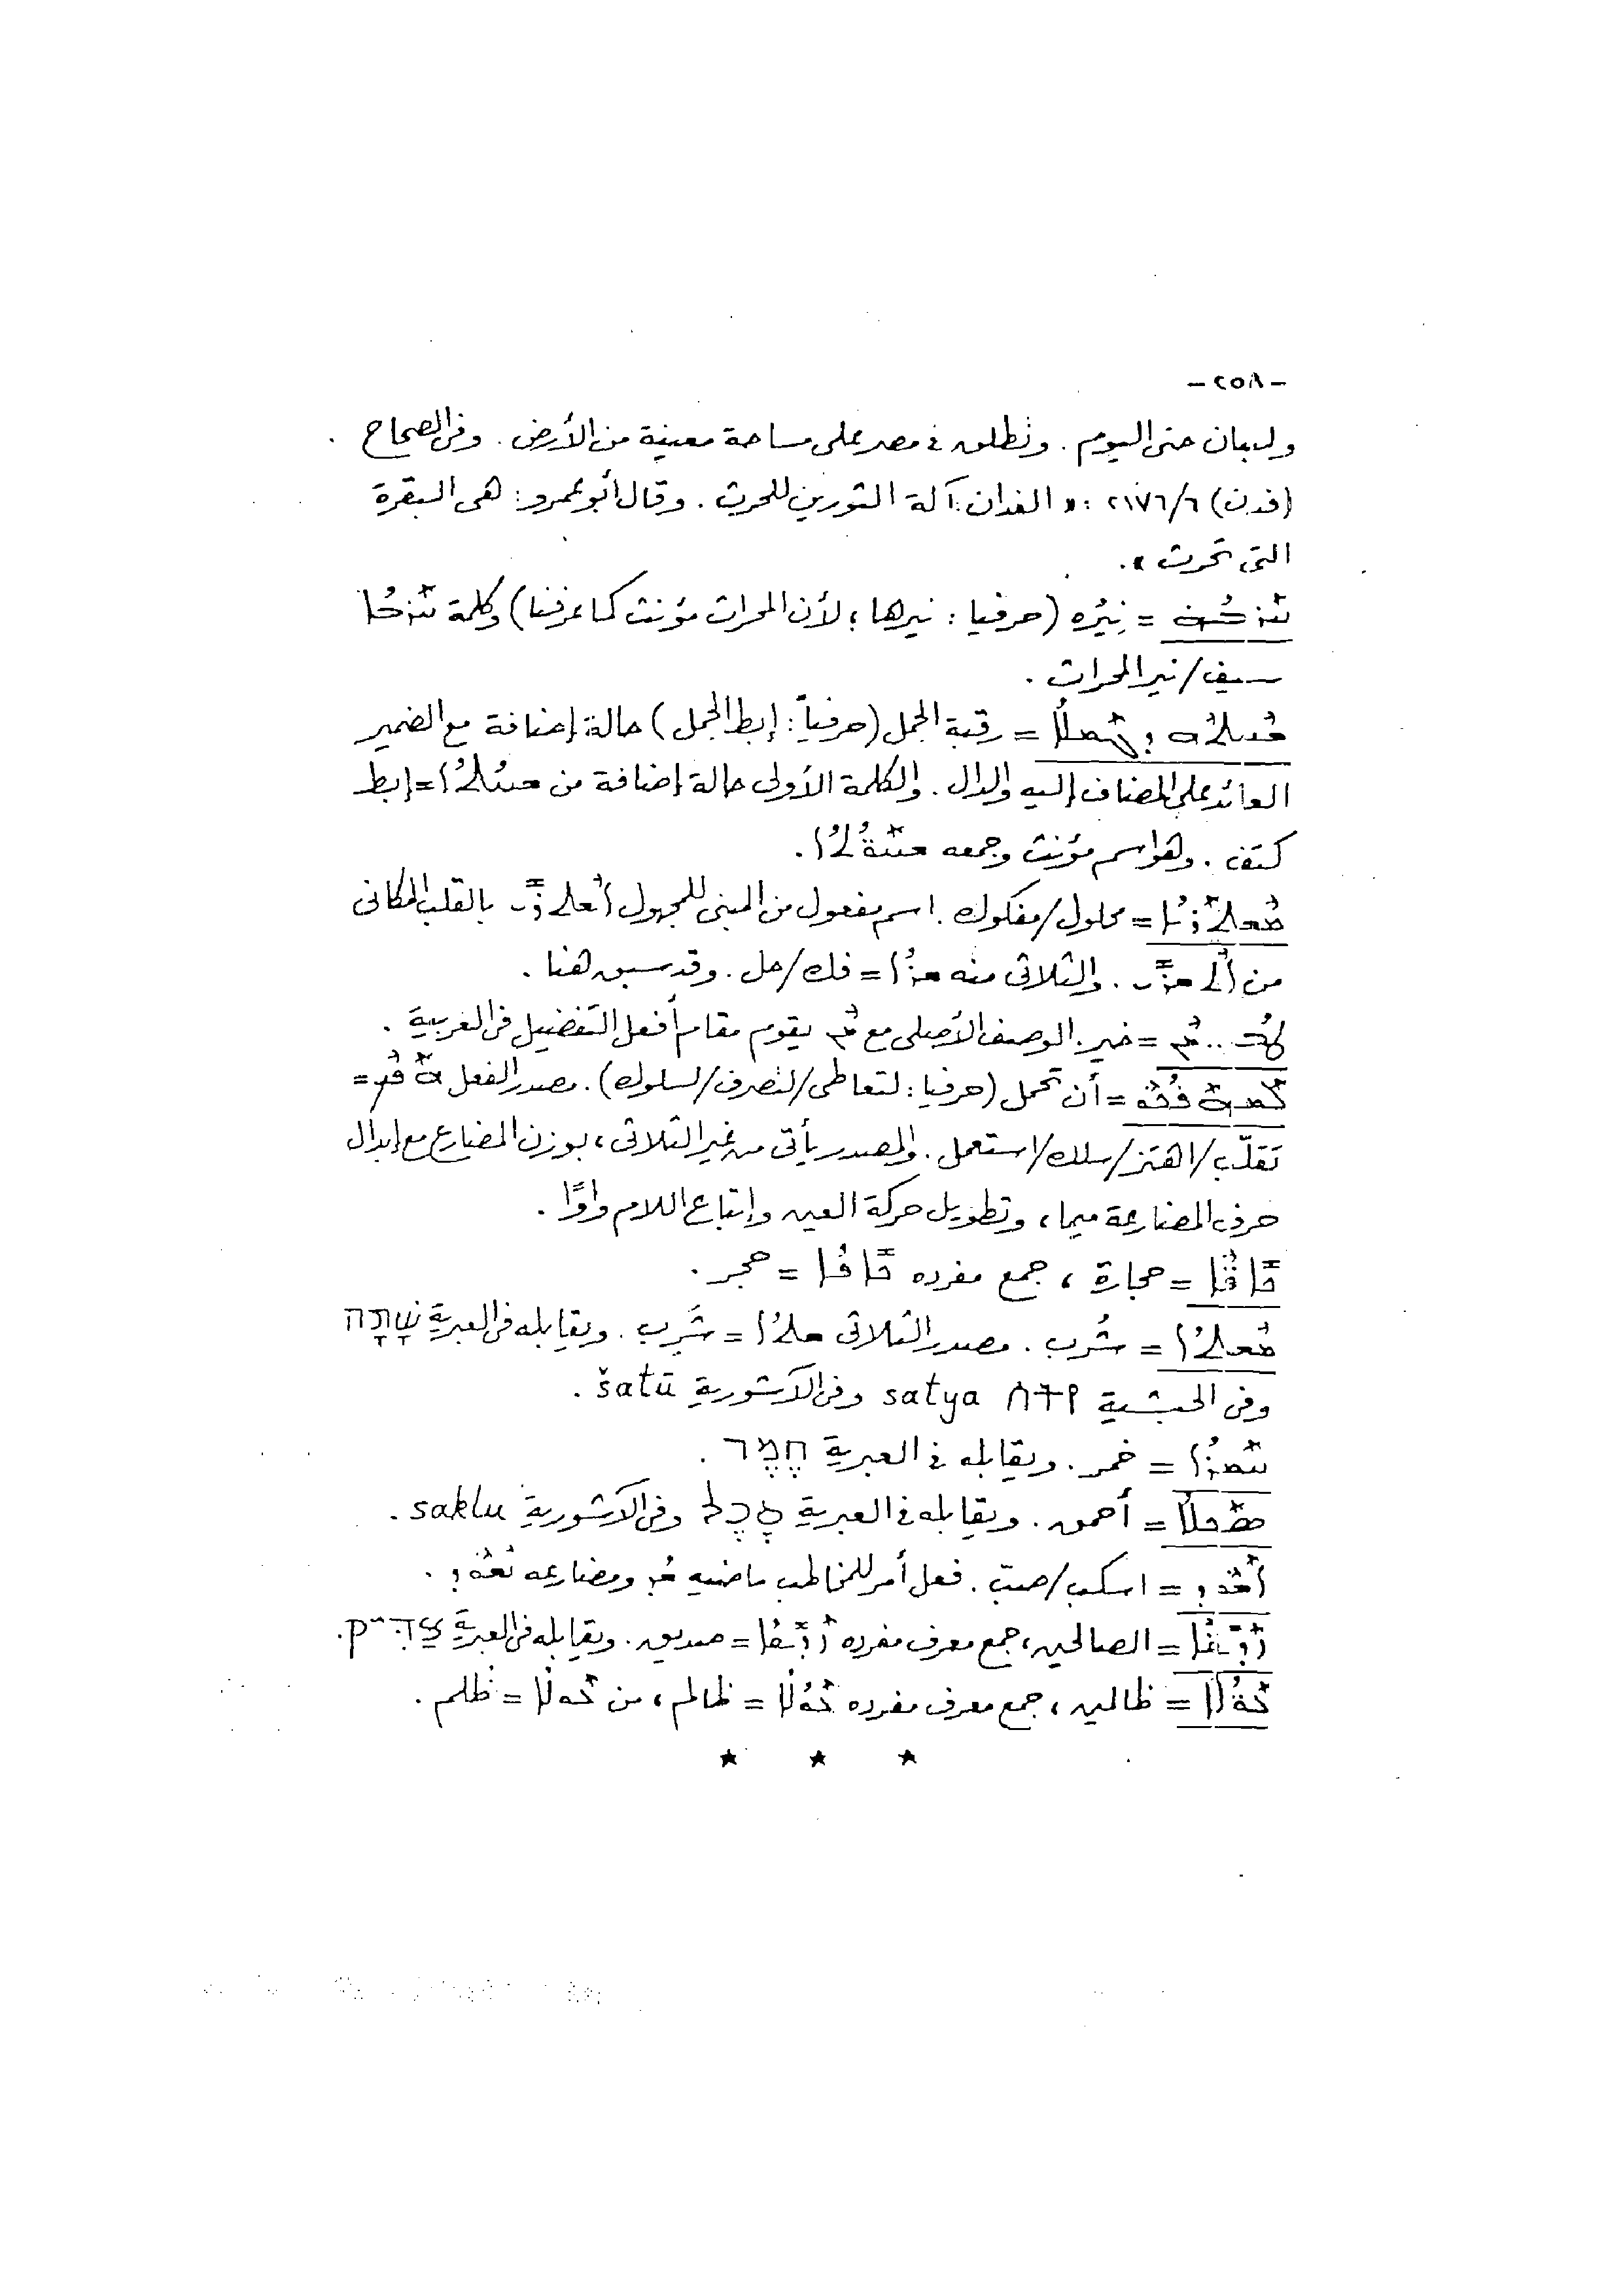 - ٢٥٨ -
ولبنان حتى اليوم . وتطلق فى مصر على مساحة معينة من الأرض . وفى الصحاح
(فدن) ٢١٧٦/٦ : « الفدان : آلة الثورين للحرث . وقال أبو عمرو : هى البقرة
التى تحرث » .
= نِيرُه (حرفيا : نيرها ؛ لأن المحراث مؤنث كما عرفنا) وكلمة
سيف / نير المحراث .
= رقبة الجمل (حرفياً : إبط الجمل) حالة إضافة مع الضمير
العائد على المضاف إليه والدال . والكلمة الأولى حالة إضافة من = إبط
كتف . وهو اسم مؤنث وجمعه
= محلول / مفكوك . اسم مفعول من المبنى للمجهول بالقلب المكانى
من . والثلاثى منه ܫܪܳܐ = فك / حل . وقد سبق هنا .
ܛܳܒ .. ܡܶܢ = خير . الوصف الأصلى مع ܡܶܢ يقوم مقام أفعل التفضيل فى العربية .
= أن تحمل (حرفيا : لتعاطى / لتصرف / لسلوك) . مصدر الفعل =
تقلّب / اهتز / سلك / استعمل . والمصدر يأتى من غير الثلاثى ، بوزن المضارع مع إبدال
حرف المضارعة ميما ، وتطويل حركة العين وإتباع اللام واوًا .
ܟܺܐܦܶܐ = حجارة ، جمع مفرده ܟܺܐܦܳܐ = حجر .
= شُرب . مصدر الثلاثى = شَرِب . ويقابله فى العبرية שָׁתָה
وفى الحبشية ሰትየ satya وفى الآشورية šatū .
ܚܰܡܪܳܐ = خمر . ويقابله فى العبرية חֶמֶר .
ܣܰܟܠܐ = أحمق . ويقابله فى العبرية סָכָל وفى الآشورية saklu .
= اسكب / صبّ . فعل أمر للمخاطب ماضيه ومضارعه
= الصالحين ، جمع معرف مفرده ܙܰܕܺܝܩܳܐ = صديق . ويقابله فى العبرية צַדִּיק .
ܥܰܘܳܠܶܐ = ظالمين ، جمع معرف مفرده ܥܰܘܳܠܳܐ = ظالم ، من = ظُلم .
★ ★ ★